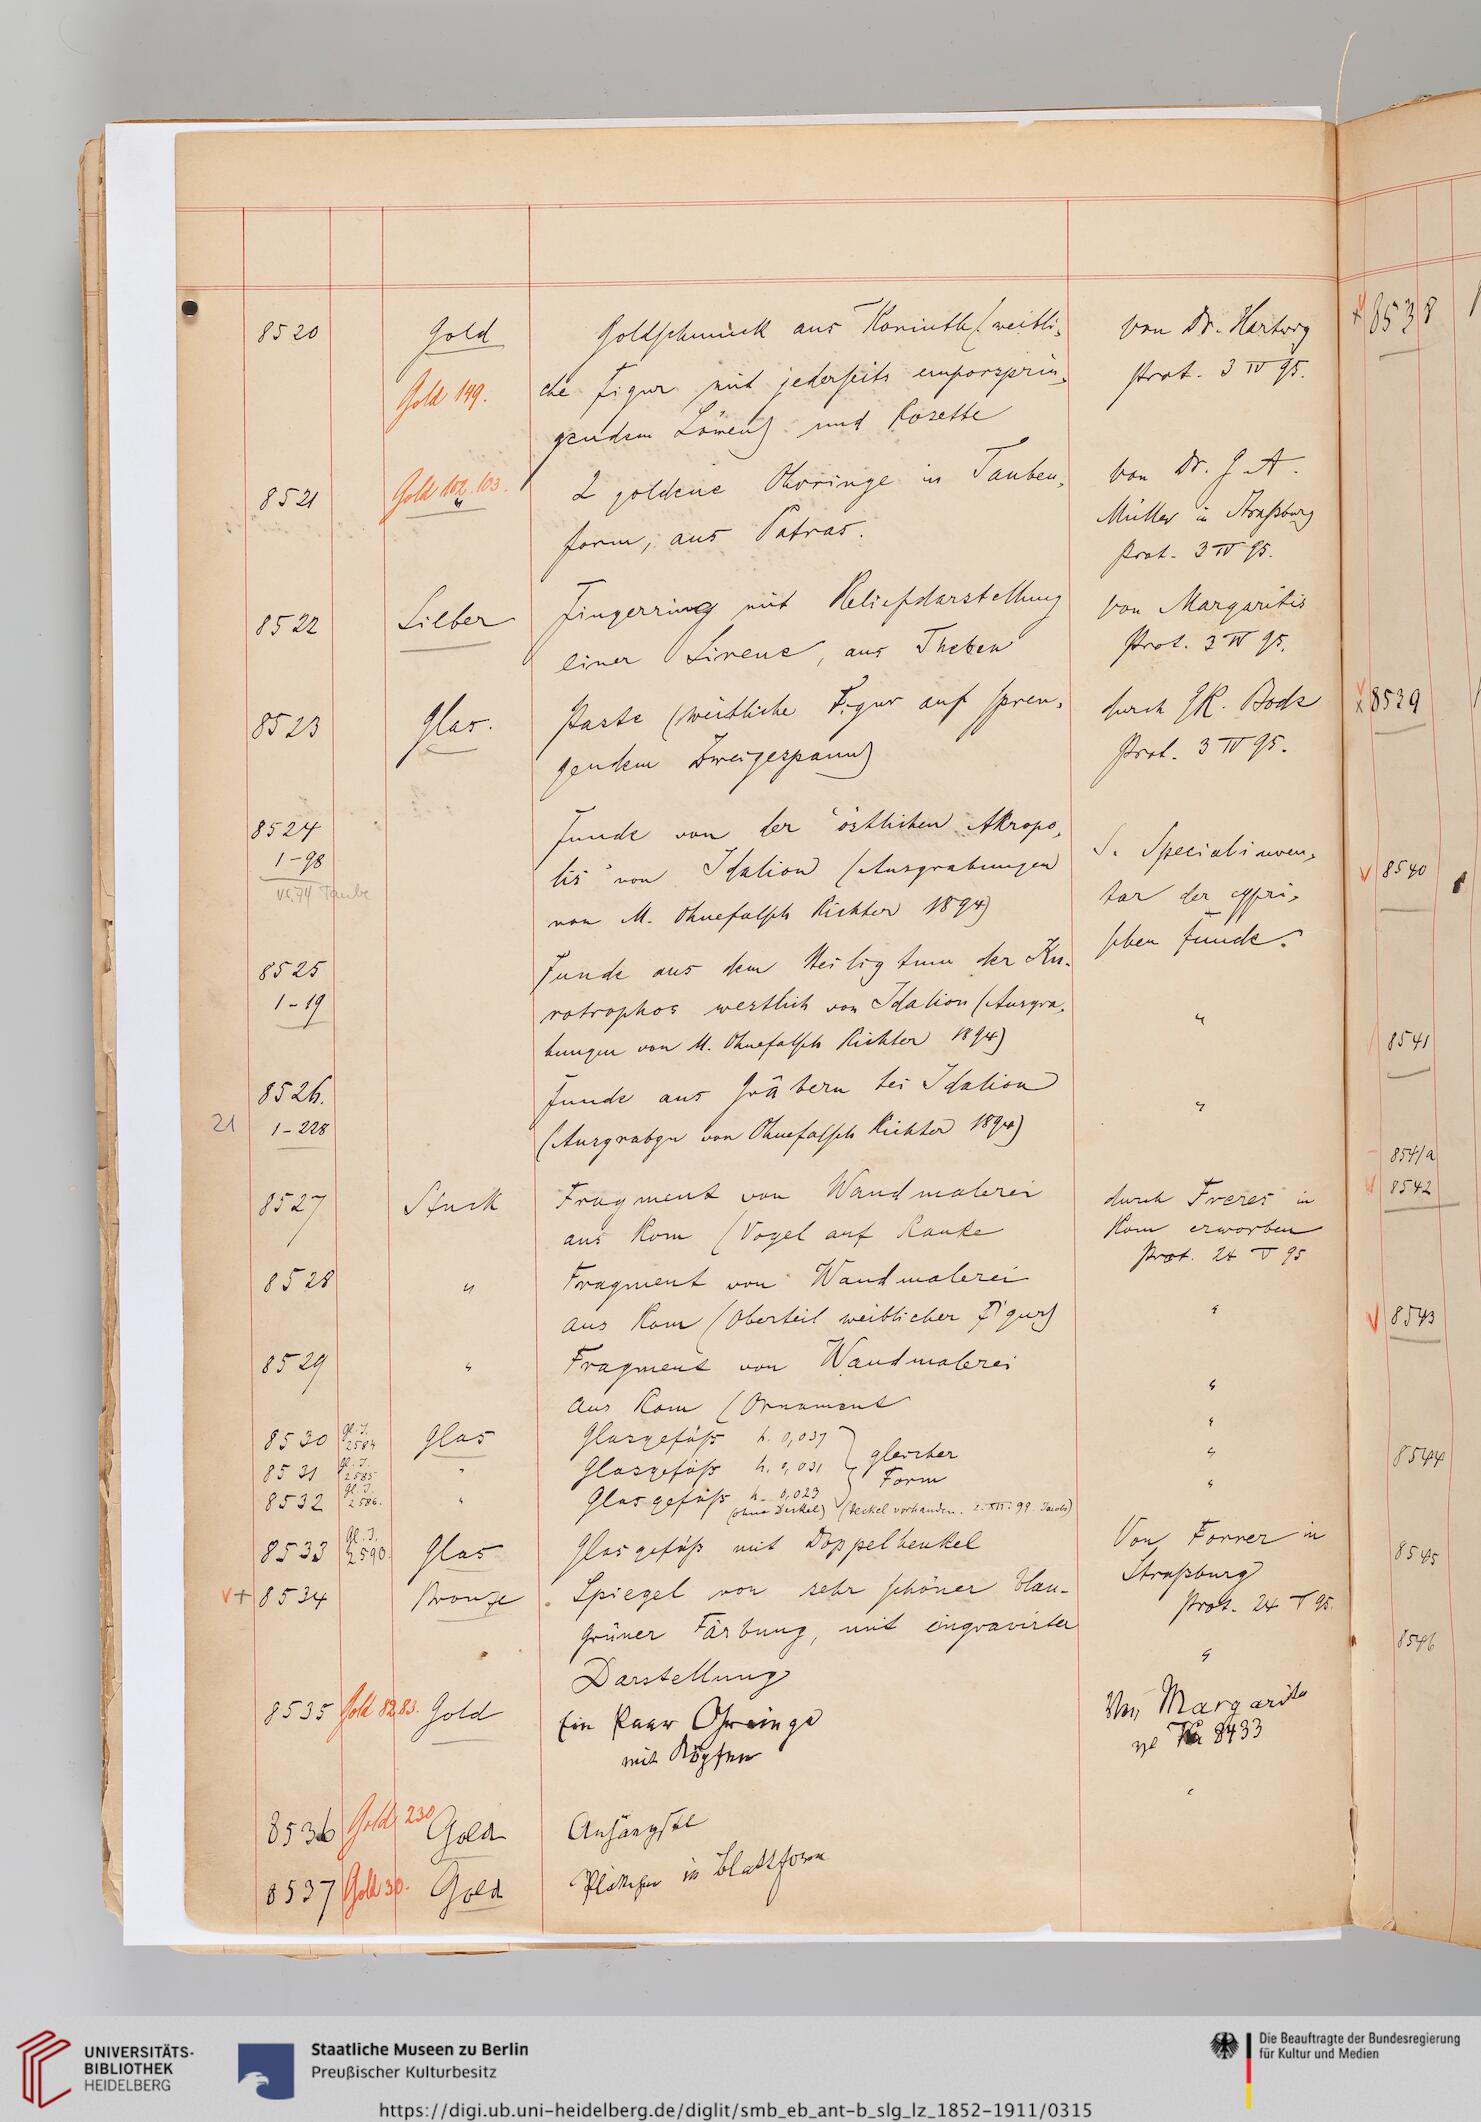 8520 Gold Goldschmuck aus Korinth (weibli-
von Dr. Hartwig
Gold 149. che Figur mit jederseits emporsprin-
Prot. 3 IV 95.
gendem Löwen) und Rosette
8521 Gold 102. 103. 2 goldene Ohrringe in Tauben-
von Dr. G. A.
" form, aus Patras.
Müller in Straßburg
Prot. 3 IV 95.
8522 Silber Fingerring mit Reliefdarstellung
von Margaritis
einer Sirene, aus Theben
Prot. 3 IV 95.
8523 Glas. Paste (weibliche Figur auf spren-
durch GR. Bode
gendem Zweigespann)
Prot. 3 IV 95.
8524 Funde von der "östlichen Akropo-
1-98 lis" von Idalion (Ausgrabungen
S. Specialinven-
Taube
von M. Ohnefalsch Richter 1894)
tar der cypri-
schen Funde.
8525 Funde aus dem Heiligtum der Ku-
1-19 rotrophos westlich von Idalion (Ausgra-
"
bungen von M. Ohnefalsch Richter 1894)
8526. Funde aus Gräbern bei Idalion
"
21 1-228 (Ausgrabgn von Ohnefalsch Richter 1894)
8527 Stuck Fragment von Wandmalerei
durch Freres in
aus Rom (Vogel auf Ranke
Rom erworben
Prot. 24 V 95
8528 " Fragment von Wandmalerei
aus Rom (Oberteil weiblicher Figur)
"
8529 " Fragment von Wandmalerei
aus Rom (Ornament
"
8530 Gl. I. 2584 Glas Glasgefäß h. 0,037 gleicher
"
8531 Gl. I. 2585 " Glasgefäß h. 0,031 Form
"
8532 Gl. I. 2586. " Glasgefäß h. 0,023
"
(ohne Deckel) (Deckel vorhanden. 2. XII. 99. Jacobs)
8533 Gl. I. 2590. Glas Glasgefäß mit Doppelhenkel
Von Forrer in
Straßburg
8534 Bronze Spiegel von sehr schöner blau-
Prot. 24 V 95.
grüner Färbung, mit eingravirter
"
Darstellung
8535 Gold 82.83. Gold Ein Paar Ohrringe
Von Margaritis
mit Köpfen
8433
8536 Gold 230 Gold Anhängsel
"
8537 Gold 30. Gold Plättchen in Blattform
8538
8539
8540
8541
8541a
8542
8543
8544
8545
8546
UNIVERSITÄTS-
BIBLIOTHEK
HEIDELBERG
Staatliche Museen zu Berlin
Preußischer Kulturbesitz
Die Beauftragte der Bundesregierung
für Kultur und Medien
https://digi.ub.uni-heidelberg.de/diglit/smb_eb_ant-b_slg_lz_1852-1911/0315